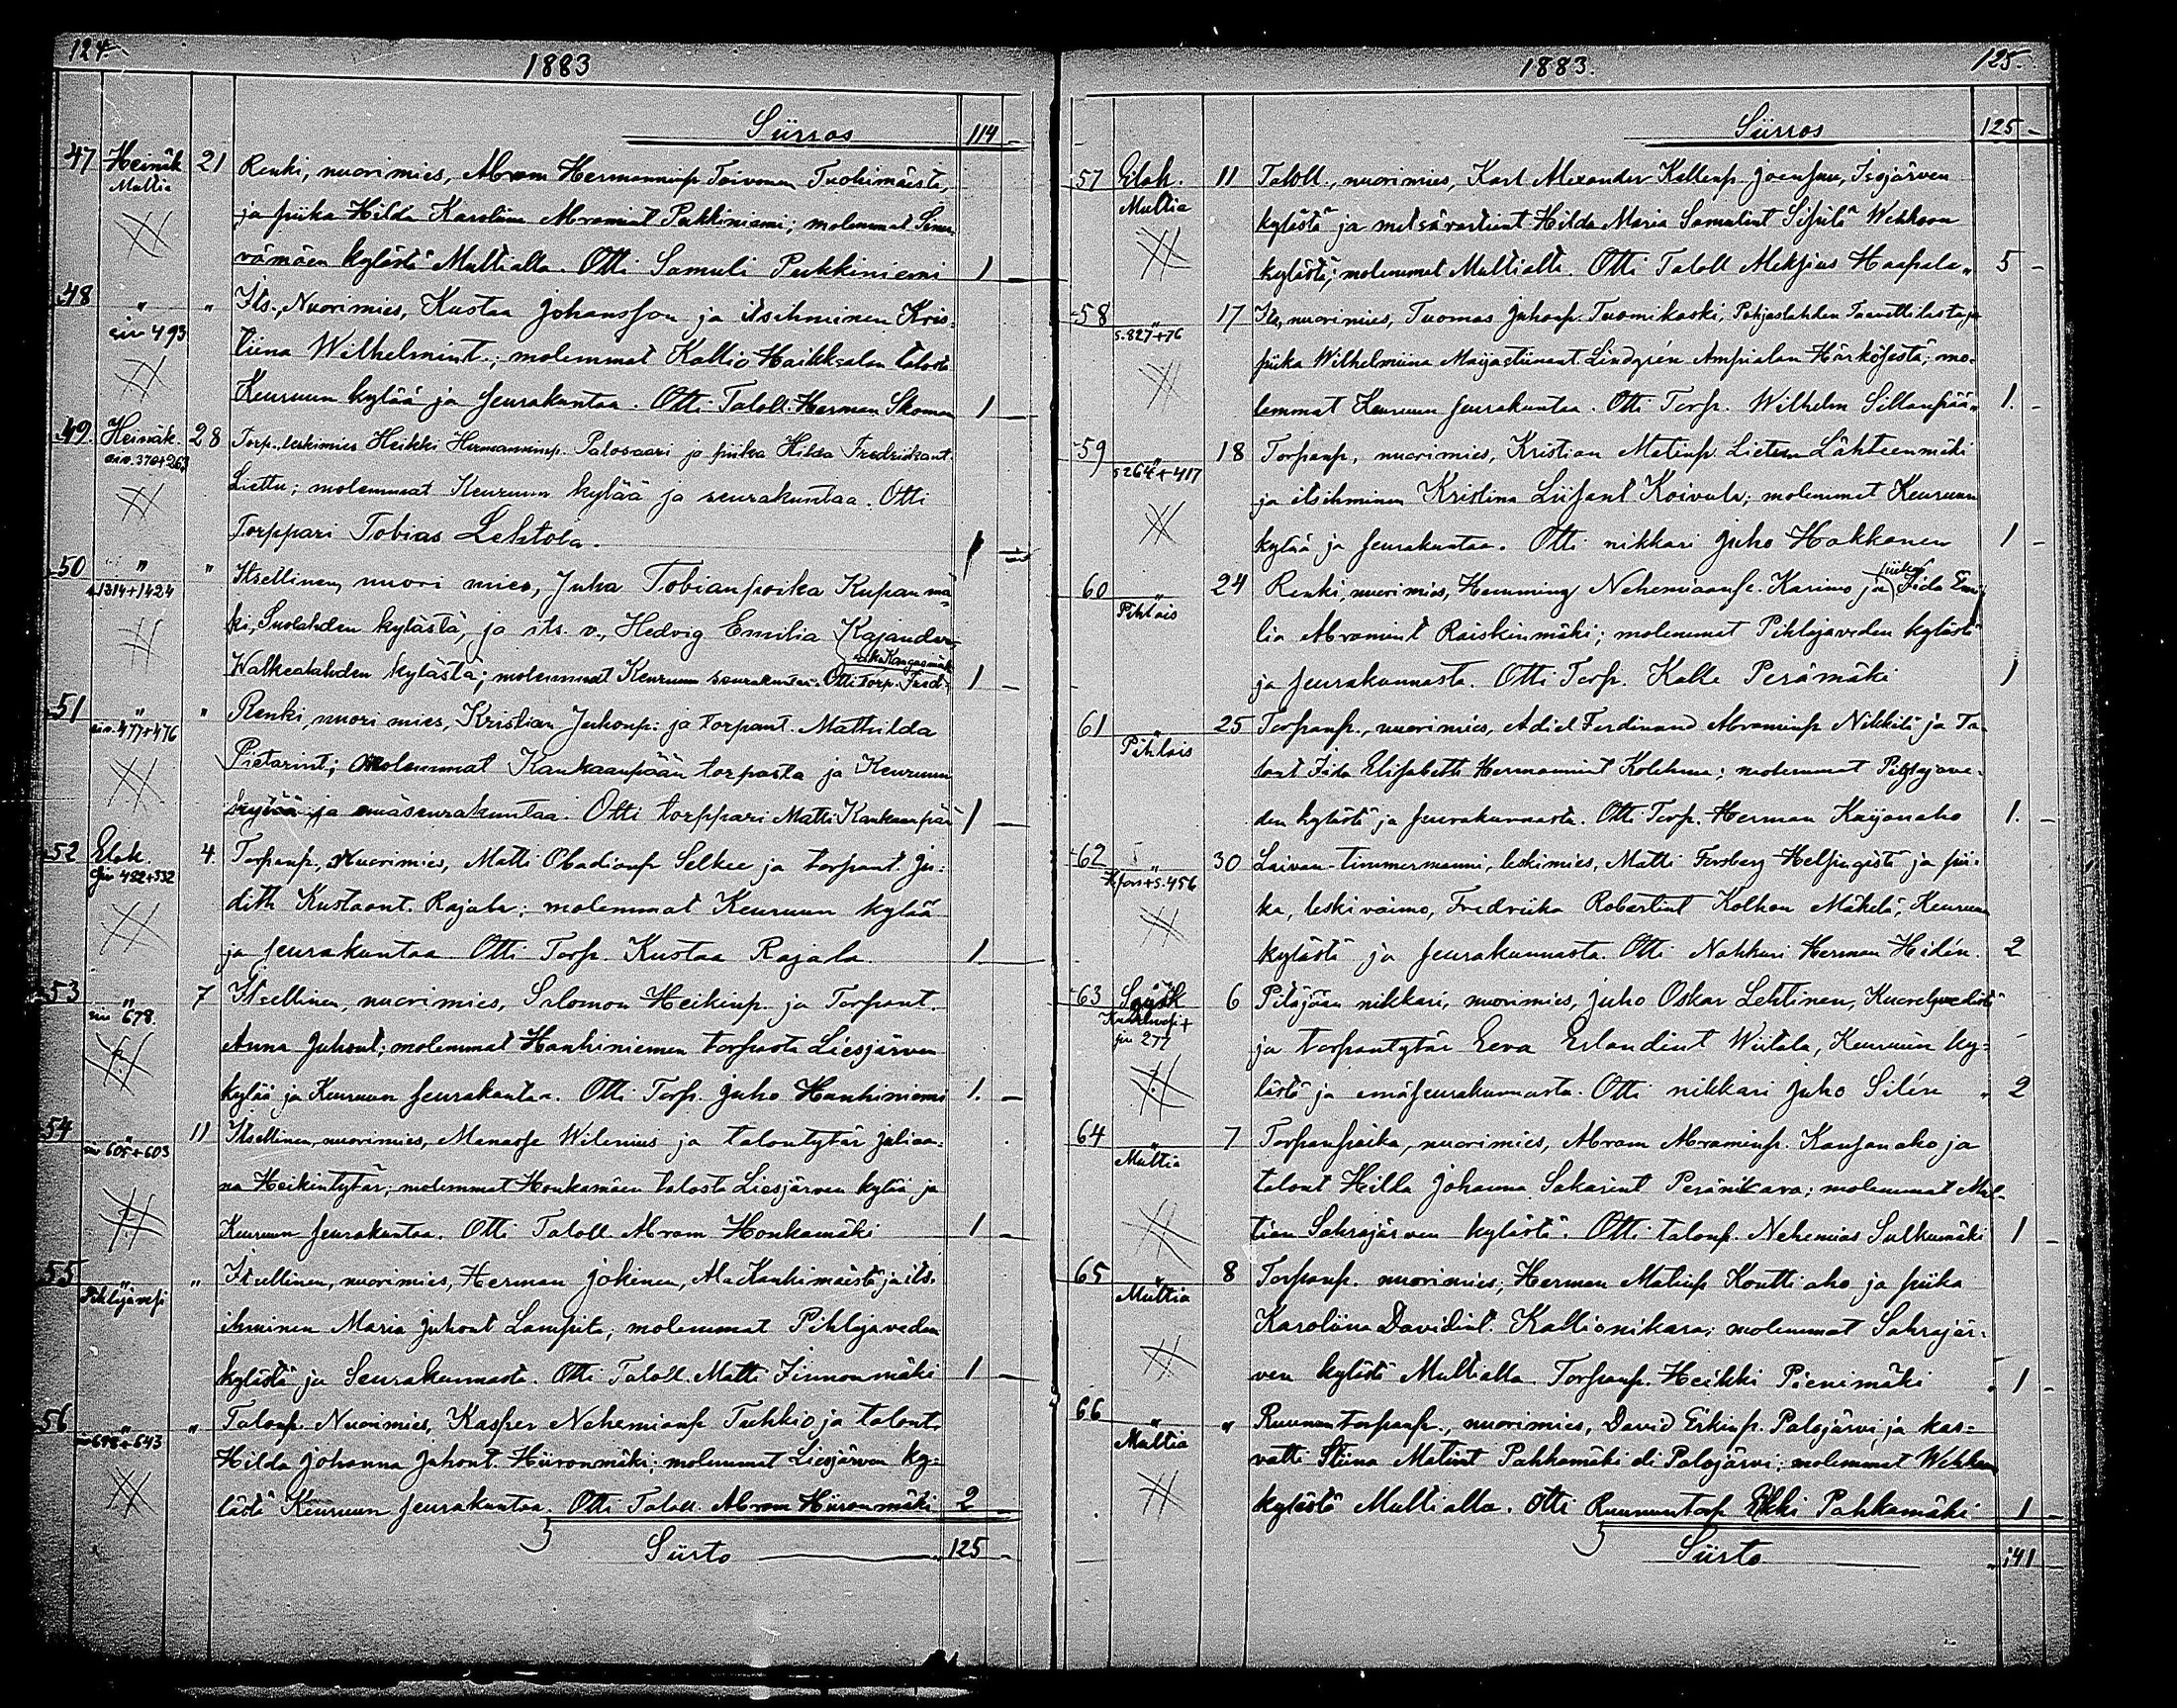 124.
1883
Siirros 114 -
47 Heinäk. 21 Renki, nuorimies, Abram Hermanninp. Toivonen Tuohimäestä,
Multia ja piika Hilda Karoliina Abramint. Pukkiniemi; molemmat
vämäen kylästä Multialla. Otti Samuli Pukkiniemi 1 -
48 " " Its., Nuorimies, Kustaa Johansson ja itsihminen Kris-
siv 493 tiina Wilhelmint.; molemmat Kallio Haikksalan talosta
Keuruun kylää ja seurakuntaa. Otti Taloll. Herman Skoman 1 -
49. Heinäk. 28 Torp. leskimies Heikki Hermanninp. Palosaari ja piika Hilda Fredrikant.
siv. 370+263 Liettu; molemmat Keuruun kylää ja seurakuntaa. Otti
Torppari Tobias Lehtola. 1 -
50 " " Itsellinen, nuori mies, Juha Tobianpoika Kupanmä-
s. 1314+1424 ki, Suolahden kylästä, ja its. v., Hedvig Emilia Kajander,
Walkealahden kylästä; molemmat Keuruun seurakuntaa. Otti Torp. Fred- 1 -
51 " " Renki, nuori mies, Kristian Juhonp. ja torpant. Mathilda
siv. 477+476 Pietarint; molemmat Kankaanpään torpasta ja Keuruun
kylää ja emäseurakuntaa. Otti torppari Matti Kankaanpää 1 -
52 Elok. 4. Torpanp., Nuorimies, Matti Obadianp. Selkee ja torpant. Ju-
siv 482+332 dith Kustaant. Rajala; molemmat Keuruun kylää
ja seurakuntaa Otti Torp. Kustaa Rajala. 1.
53 " 7 Itsellinen, nuorimies, Salomon Heikinp. ja Torpant.
siv 678. Anna Juhont; molemmat Hanhiniemen torpasta Liesjärven
kylää ja Keuruun seurakuntaa. Otti Torp. Juho Hanhiniemi 1. -
54 " 11 Itsellinen, nuorimies, Manasse Wilenius ja talontytär Juliaa-
siv 605+603 na Heikintytär; molemmat Honkamäen talosta Liesjärven kylää ja
Keuruun seurakuntaa. Otti Taloll. Abram Honkamäki 1 -
55 " " Itsellinen, nuorimies, Herman Jokinen, Ala Kanhimäestä ja its.
Pihlajavesi ihminen Maria Juhont Lampita; molemmat Pihlajaveden
kylästä ja Seurakunnasta. Otti Taloll. Matti Finnonmäki 1 -
56 " " Talonp. Nuorimies, Kasper Nehemianp Tuhkio ja talont.
698+643 Hilda Johanna Juhont. Hiironmäki; molemmat Liesjärven ky-
lästä Keuruun seurakuntaa. Otti Taloll. Abram Hiironmäki 2 -
Siirto 125 -
1883.
125.
Siirros 125 -
57 Elok. 11 Taloll., nuorimies, Karl Alexander Kallenp. Joensuu, Isojärven
Multia kylästä ja metsävardient Hilda Maria Samulint Sysilä Wehkoon
kylästä; molemmat Multialta. Otti Taloll Aleksius Haapala " 5 -
58 " 17 Its, nuorimies, Tuomas Juhonp. Tuomikoski, Pohjoslahden Taavettilasta ja
s. 827+76 piika Wilhelmiina Maijastiinant. Lindgrén Ampialan Härkösestä; mo-
lemmat Keuruun seurakuntaa. Otti Torp. Wilhelm Sillanpää " 1. -
59 " 18 Torpanp., nuorimies, Kristian Matinp. Lietun Lähteenmäki
s 264+417 ja itsihminen Kristina Liisant Koivula; molemmat Keuruun
kylää ja seurakuntaa. Otti nikkari Juho Hakkanen 1 -
60 " 24 Renki, nuorimies, Hemming Nehemiaanp. Karimo ja piika Fida Emi-
Pihlais lia Abramint Raiskinmäki; molemmat Pihlajaveden kylästä
ja seurakunnasta. Otti Torp. Kalle Perämäki 1
61 " 25 Torpanp., nuorimies, Adiel Ferdinand Abraminp Nikkilä ja Ta-
Pihlais lont Fida Elisabeth Hermannint Kolehma; molemmat Pihlajave-
den kylästä ja seurakunnasta. Otti Torp. Herman Kaijanaho 1. -
62 " 30 Laivan-timmermanni, leskimies, Matti Forsberg Helsingistä ja pii-
H:fors+s. 456 ka, leskivaimo, Fredriika Robertint Kolhon Mäkelä, Keuruun
kylästä ja seurakunnasta. Otti Nahkuri Herman Hidén. 2
63 Syysk 6 Pitäjään nikkari, nuorimies, Juho Oskar Lehtinen, Kuorevedestä
siv 277 ja torpantytär Eeva Erlandint Wiitala, Keuruun ky-
lästä ja emäseurakunnasta. Otti nikkari Juho Silén " 2
64 " 7 Torpanpoika, nuorimies, Abram Abraminp. Kansanaho ja
Multia talont Hilda Johanna Sakarint Peränikara; molemmat Mul-
tian Sahrajärven kylästä. Otti talonp. Nehemias Sulkumäki 1 -
65 " 8 Torpanp. nuorimies, Herman Matinp Konttiaho ja piika
Multia Karoliina Davidint. Kallionikara; molemmat Sahrajär-
ven kylästä Multialla Torpanp. Heikki Pienimäki " 1 -
66 " " Ruununtorpanp., nuorimies, David Erkinp. Palojärvi, ja kas-
Multia vatti Stiina Matint Pahkamäki eli Palojärvi; molemmat Wehkoon
kylästä Multialla. Otti Ruununtorp Erkki Pahkamäki 1 -
Siirto " 141